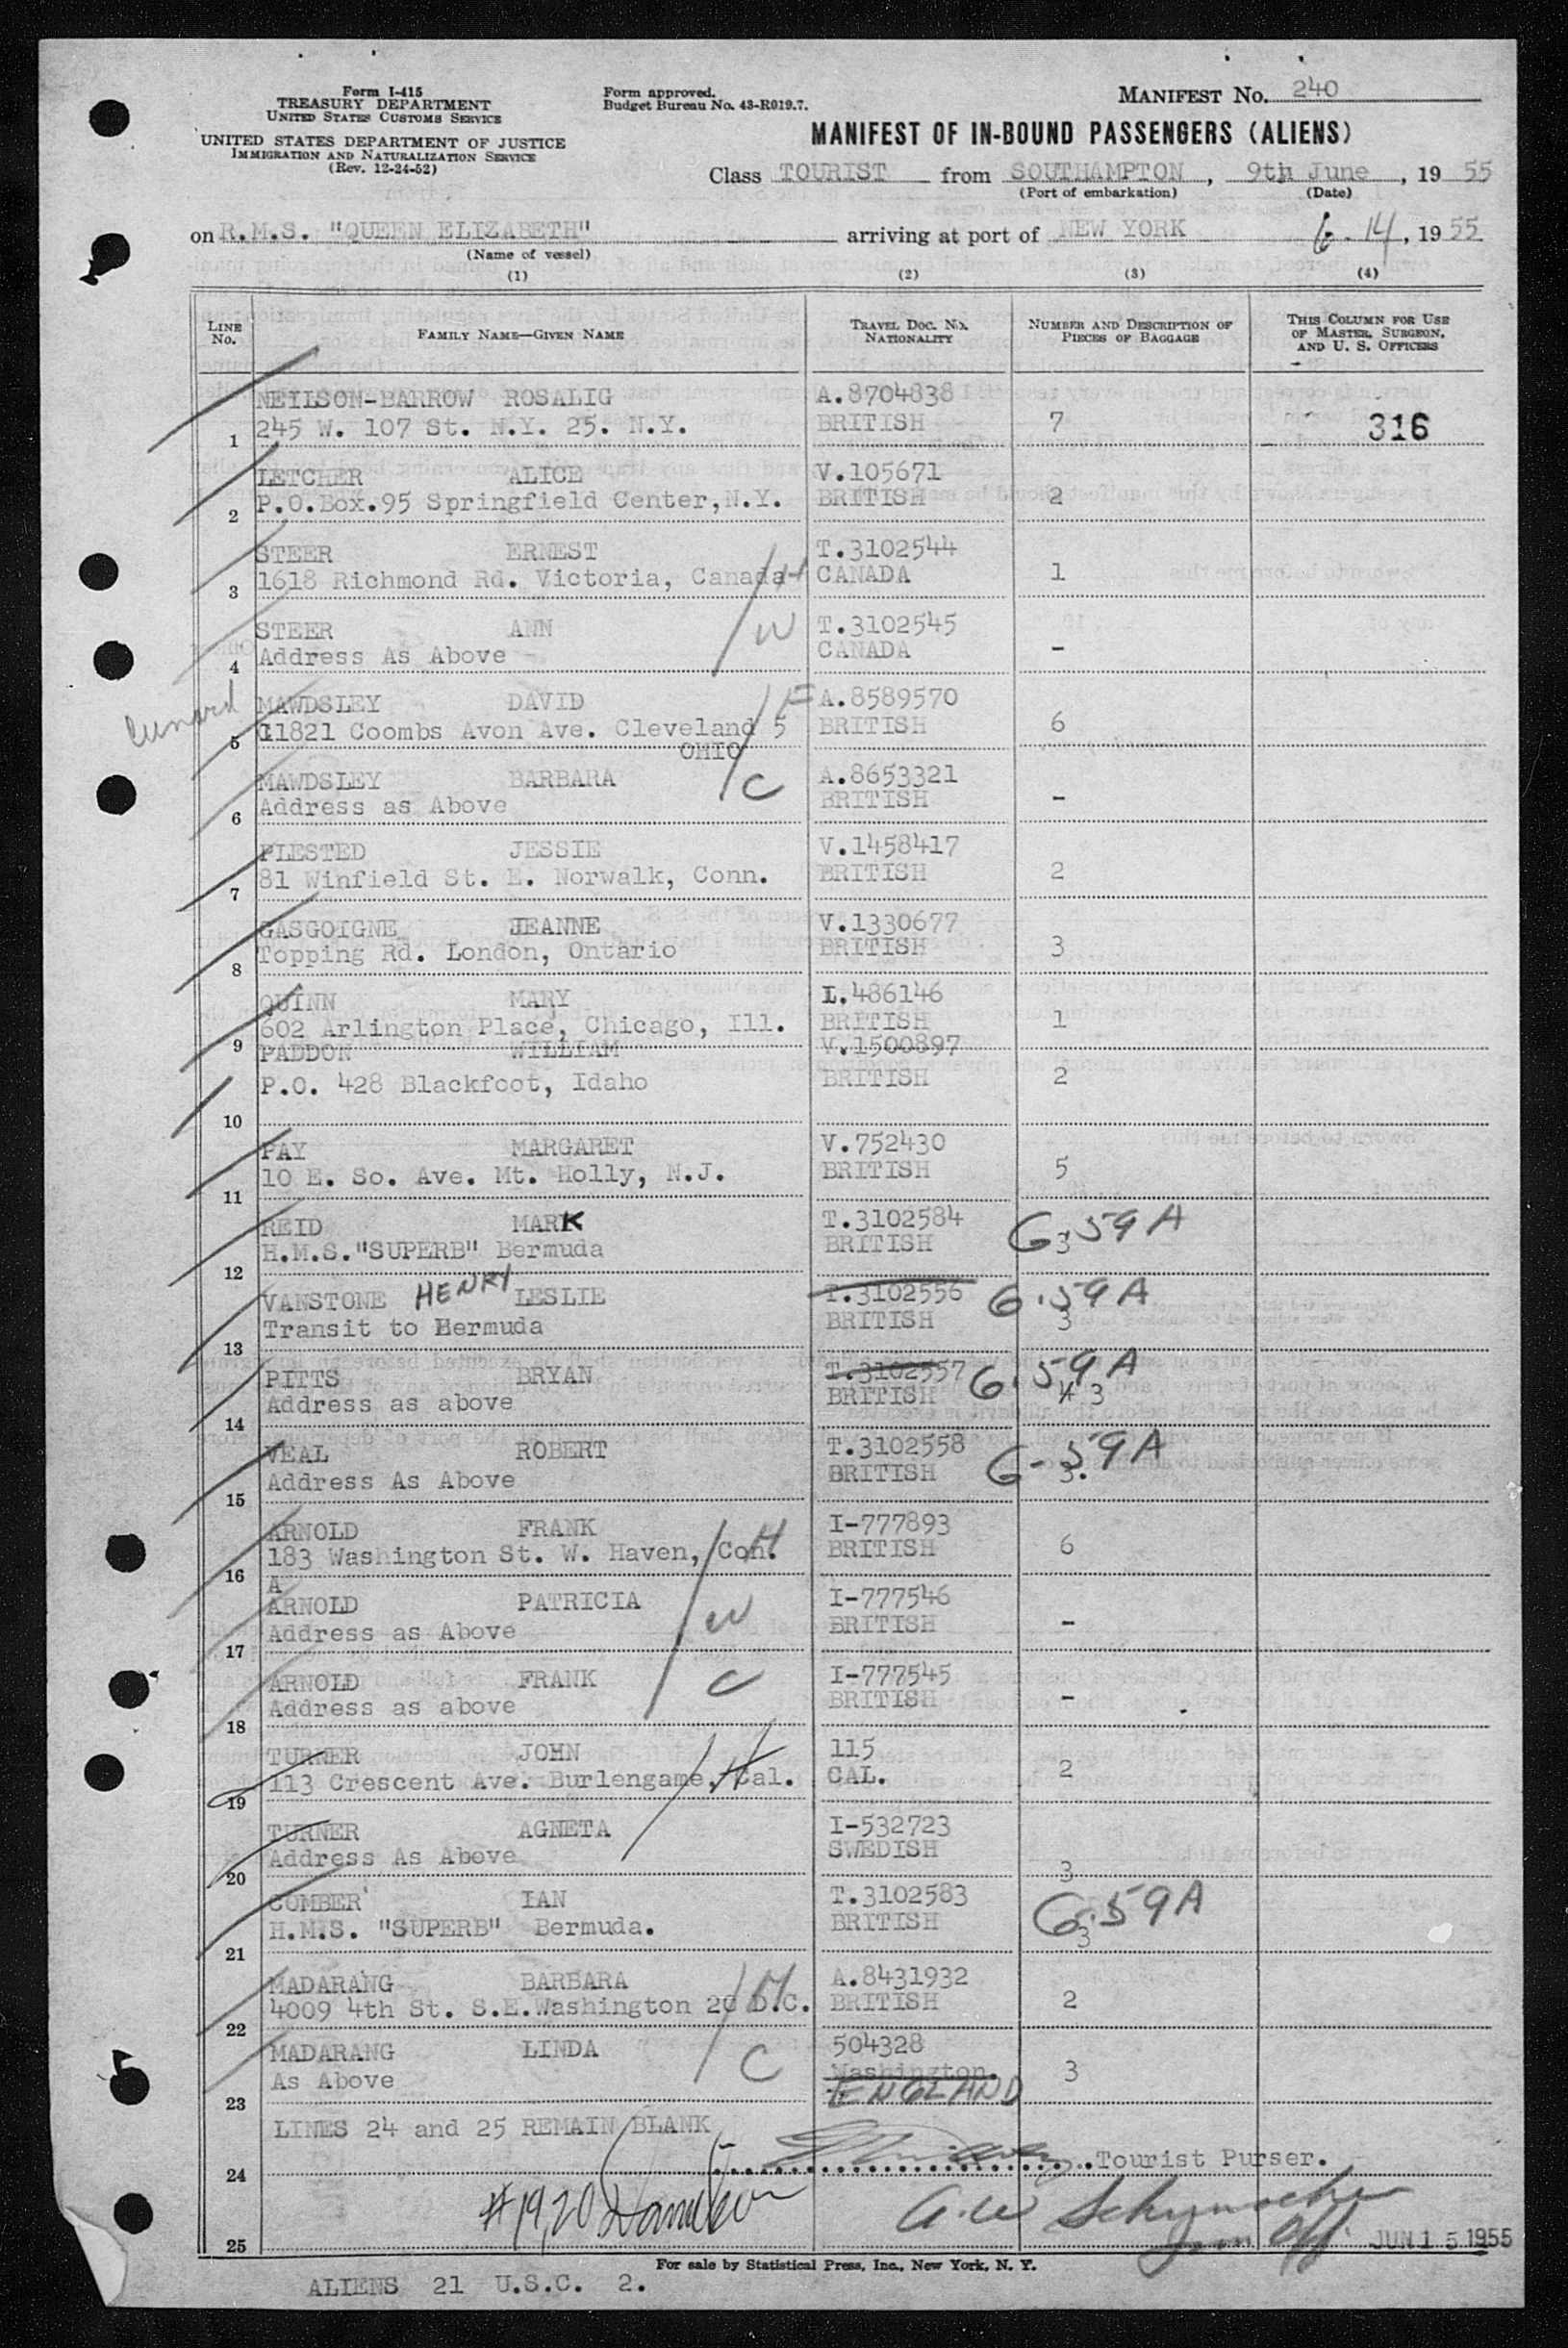 Form I-415
TREASURY DEPARTMENT
UNITED STATES CUSTOMS SERVICE
UNITED STATES DEPARTMENT OF JUSTICE
IMMIGRATION AND NATURALIZATION SERVICE
(Rev. 12-24-52)
Form approved.
Budget Bureau No. 43-R019.7.
MANIFEST No. 240
MANIFEST OF IN-BOUND PASSENGERS (ALIENS)
Class TOURIST from SOUTHAMPTON, 9th June, 19 55
(Port of embarkation) (Date)
on R.M.S. "QUEEN ELIZABETH" arriving at port of NEW YORK 6.14, 1955
(Name of vessel)
(1) (2) (3) (4)
LINE No. FAMILY NAME—GIVEN NAME TRAVEL DOC. NO. NATIONALITY NUMBER AND DESCRIPTION OF PIECES OF BAGGAGE THIS COLUMN FOR USE OF MASTER, SURGEON, AND U. S. OFFICERS
NEILSON-BARROW ROSALIG A.8704838
1 245 W. 107 St. N.Y. 25. N.Y. BRITISH 7 316
LETCHER ALICE V.105671
2 P.O.Box.95 Springfield Center,N.Y. BRITISH 2
STEER ERNEST T.3102544
3 1618 Richmond Rd. Victoria, Canada H CANADA 1
STEER ANN W T.3102545
4 Address As Above - CANADA -
Cunard
MAWDSLEY DAVID F A.8589570
5 11821 Coombs Avon Ave. Cleveland 5 BRITISH 6
OHIO
MAWDSLEY BARBARA C A.8653321
6 Address as Above BRITISH -
PLESTED JESSIE V.1458417
7 81 Winfield St. E. Norwalk, Conn. BRITISH 2
GASGOIGNE JEANNE V.1330677
8 Topping Rd. London, Ontario BRITISH 3
QUINN MARY I.486146
9 602 Arlington Place, Chicago, Ill. BRITISH 1
PADDON WILLIAM V.1500897
P.O. 428 Blackfoot, Idaho BRITISH 2
10
PAY MARGARET V.752430
11 10 E. So. Ave. Mt. Holly, N.J. BRITISH 5
REID MARK T.3102584 G.59A
12 H.M.S."SUPERB" Bermuda BRITISH 3
VANSTONE HENRY LESLIE T.3102556 G.59A
13 Transit to Bermuda BRITISH 3
PITTS BRYAN T.3102557 G.59A
14 Address as above BRITISH 3
VEAL ROBERT T.3102558 G-59A
15 Address As Above BRITISH 3.
ARNOLD FRANK I-777893
16 183 Washington St. W. Haven, Con. H BRITISH 6
A
ARNOLD PATRICIA W I-777546
17 Address as Above BRITISH -
ARNOLD FRANK C I-777545
18 Address as above BRITISH -
TURNER JOHN 115
19 113 Crescent Ave. Burlengame, Cal. H CAL. 2
TURNER AGNETA I-532723
20 Address As Above SWEDISH 3
COMBER IAN T.3102583 G.59A
21 H.M.S. "SUPERB" Bermuda. BRITISH 3
MADARANG BARBARA M A.8431932
22 4009 4th St. S.E.Washington 20 D.C. BRITISH 2
MADARANG LINDA C 504328
As Above Washington. 3
23 ENGLAND
LINES 24 and 25 REMAIN BLANK
24 Tourist Purser.
#19,20
25 JUN 15 1955
For sale by Statistical Press, Inc., New York, N. Y.
ALIENS 21 U.S.C. 2.